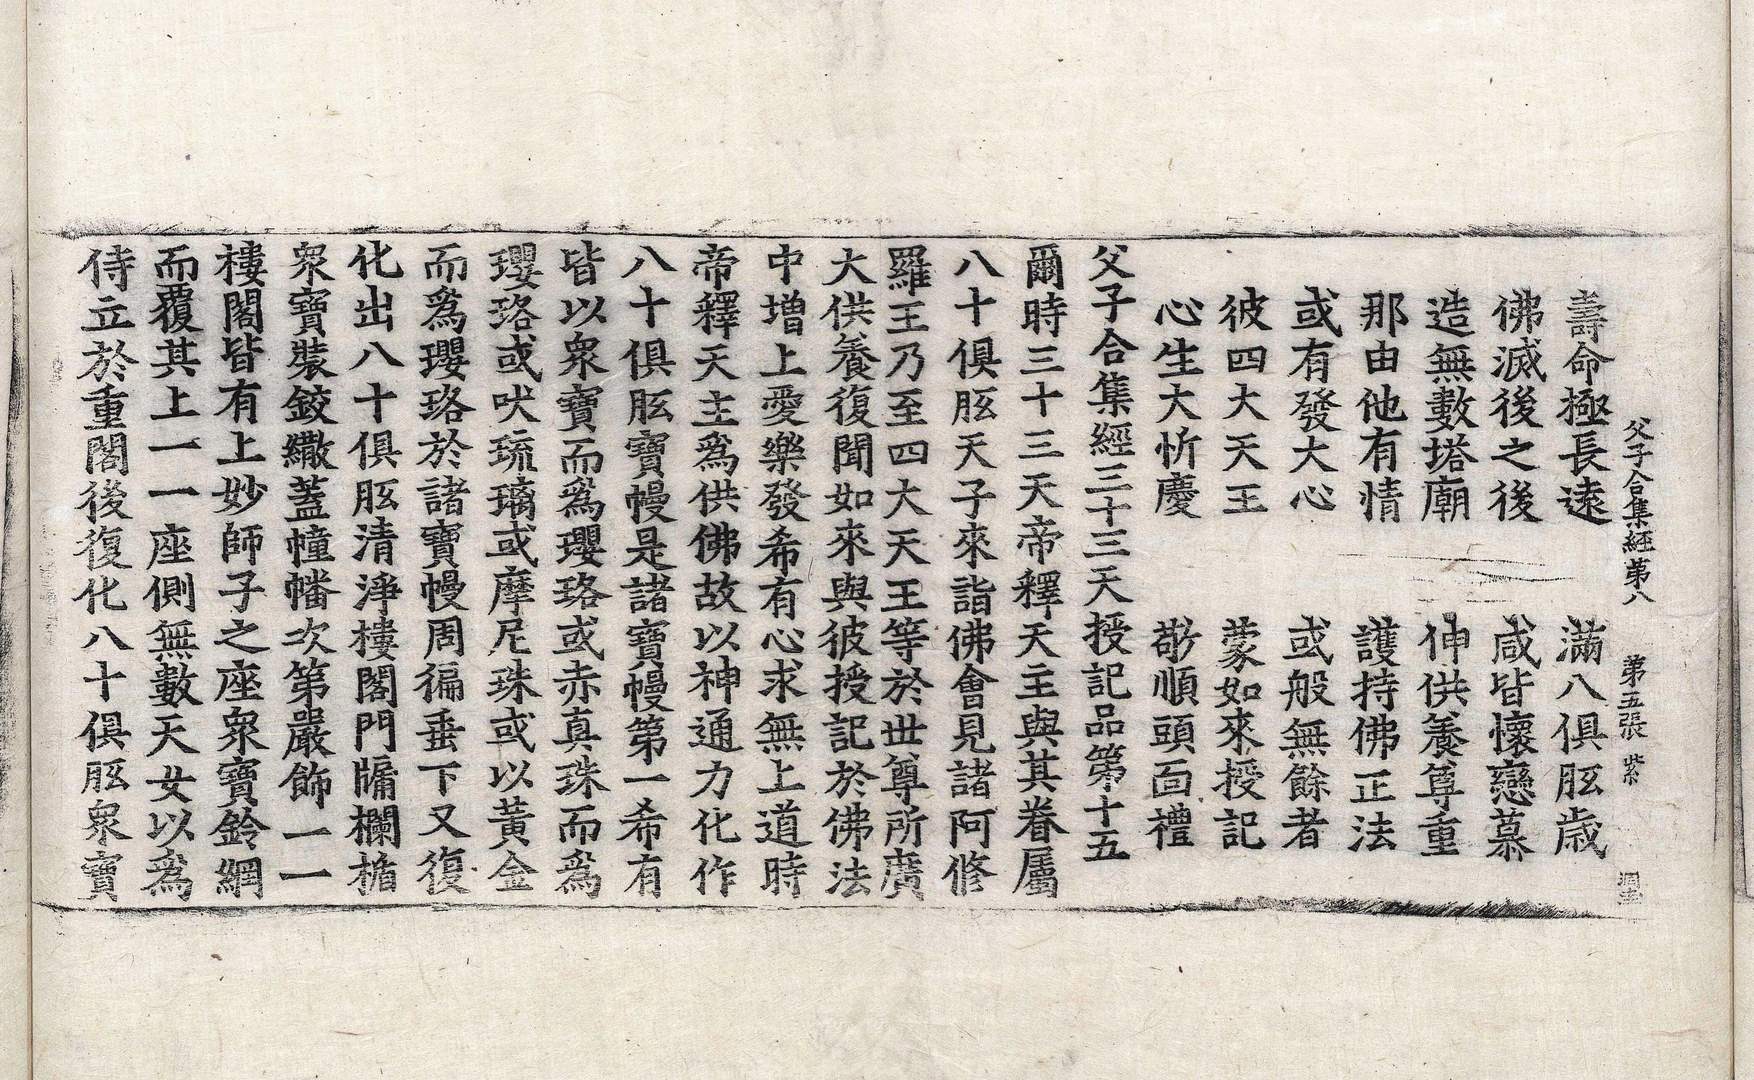 父子合集經第八 第五張 紫
壽命極長遠 滿八俱胝歲
佛滅後之後 咸皆懷戀慕
造無數塔廟 伸供養尊重
那由他有情 護持佛正法
或有發大心 或般無餘者
彼四大天王 蒙如來授記
心生大忻慶 敬順頭面禮
父子合集經三十三天授記品第十五
爾時三十三天帝釋天主與其眷屬
八十俱胝天子來詣佛會見諸阿修
羅王乃至四大天王等於世尊所廣
大供養復聞如來與彼授記於佛法
中增上愛樂發希有心求無上道時
帝釋天主爲供佛故以神通力化作
八十俱胝寶幔是諸寶幔第一希有
皆以衆寶而爲瓔珞或赤真珠而爲
瓔珞或吠琉璃或摩尼珠或以黃金
而爲瓔珞於諸寶幔周徧垂下又復
化出八十俱胝清淨樓閣門牖欄楯
衆寶裝鉸繖蓋幢幡次第嚴飾一一
樓閣皆有上妙師子之座衆寶鈴網
而覆其上一一座側無數天女以爲
侍立於重閣後復化八十俱胝衆寶